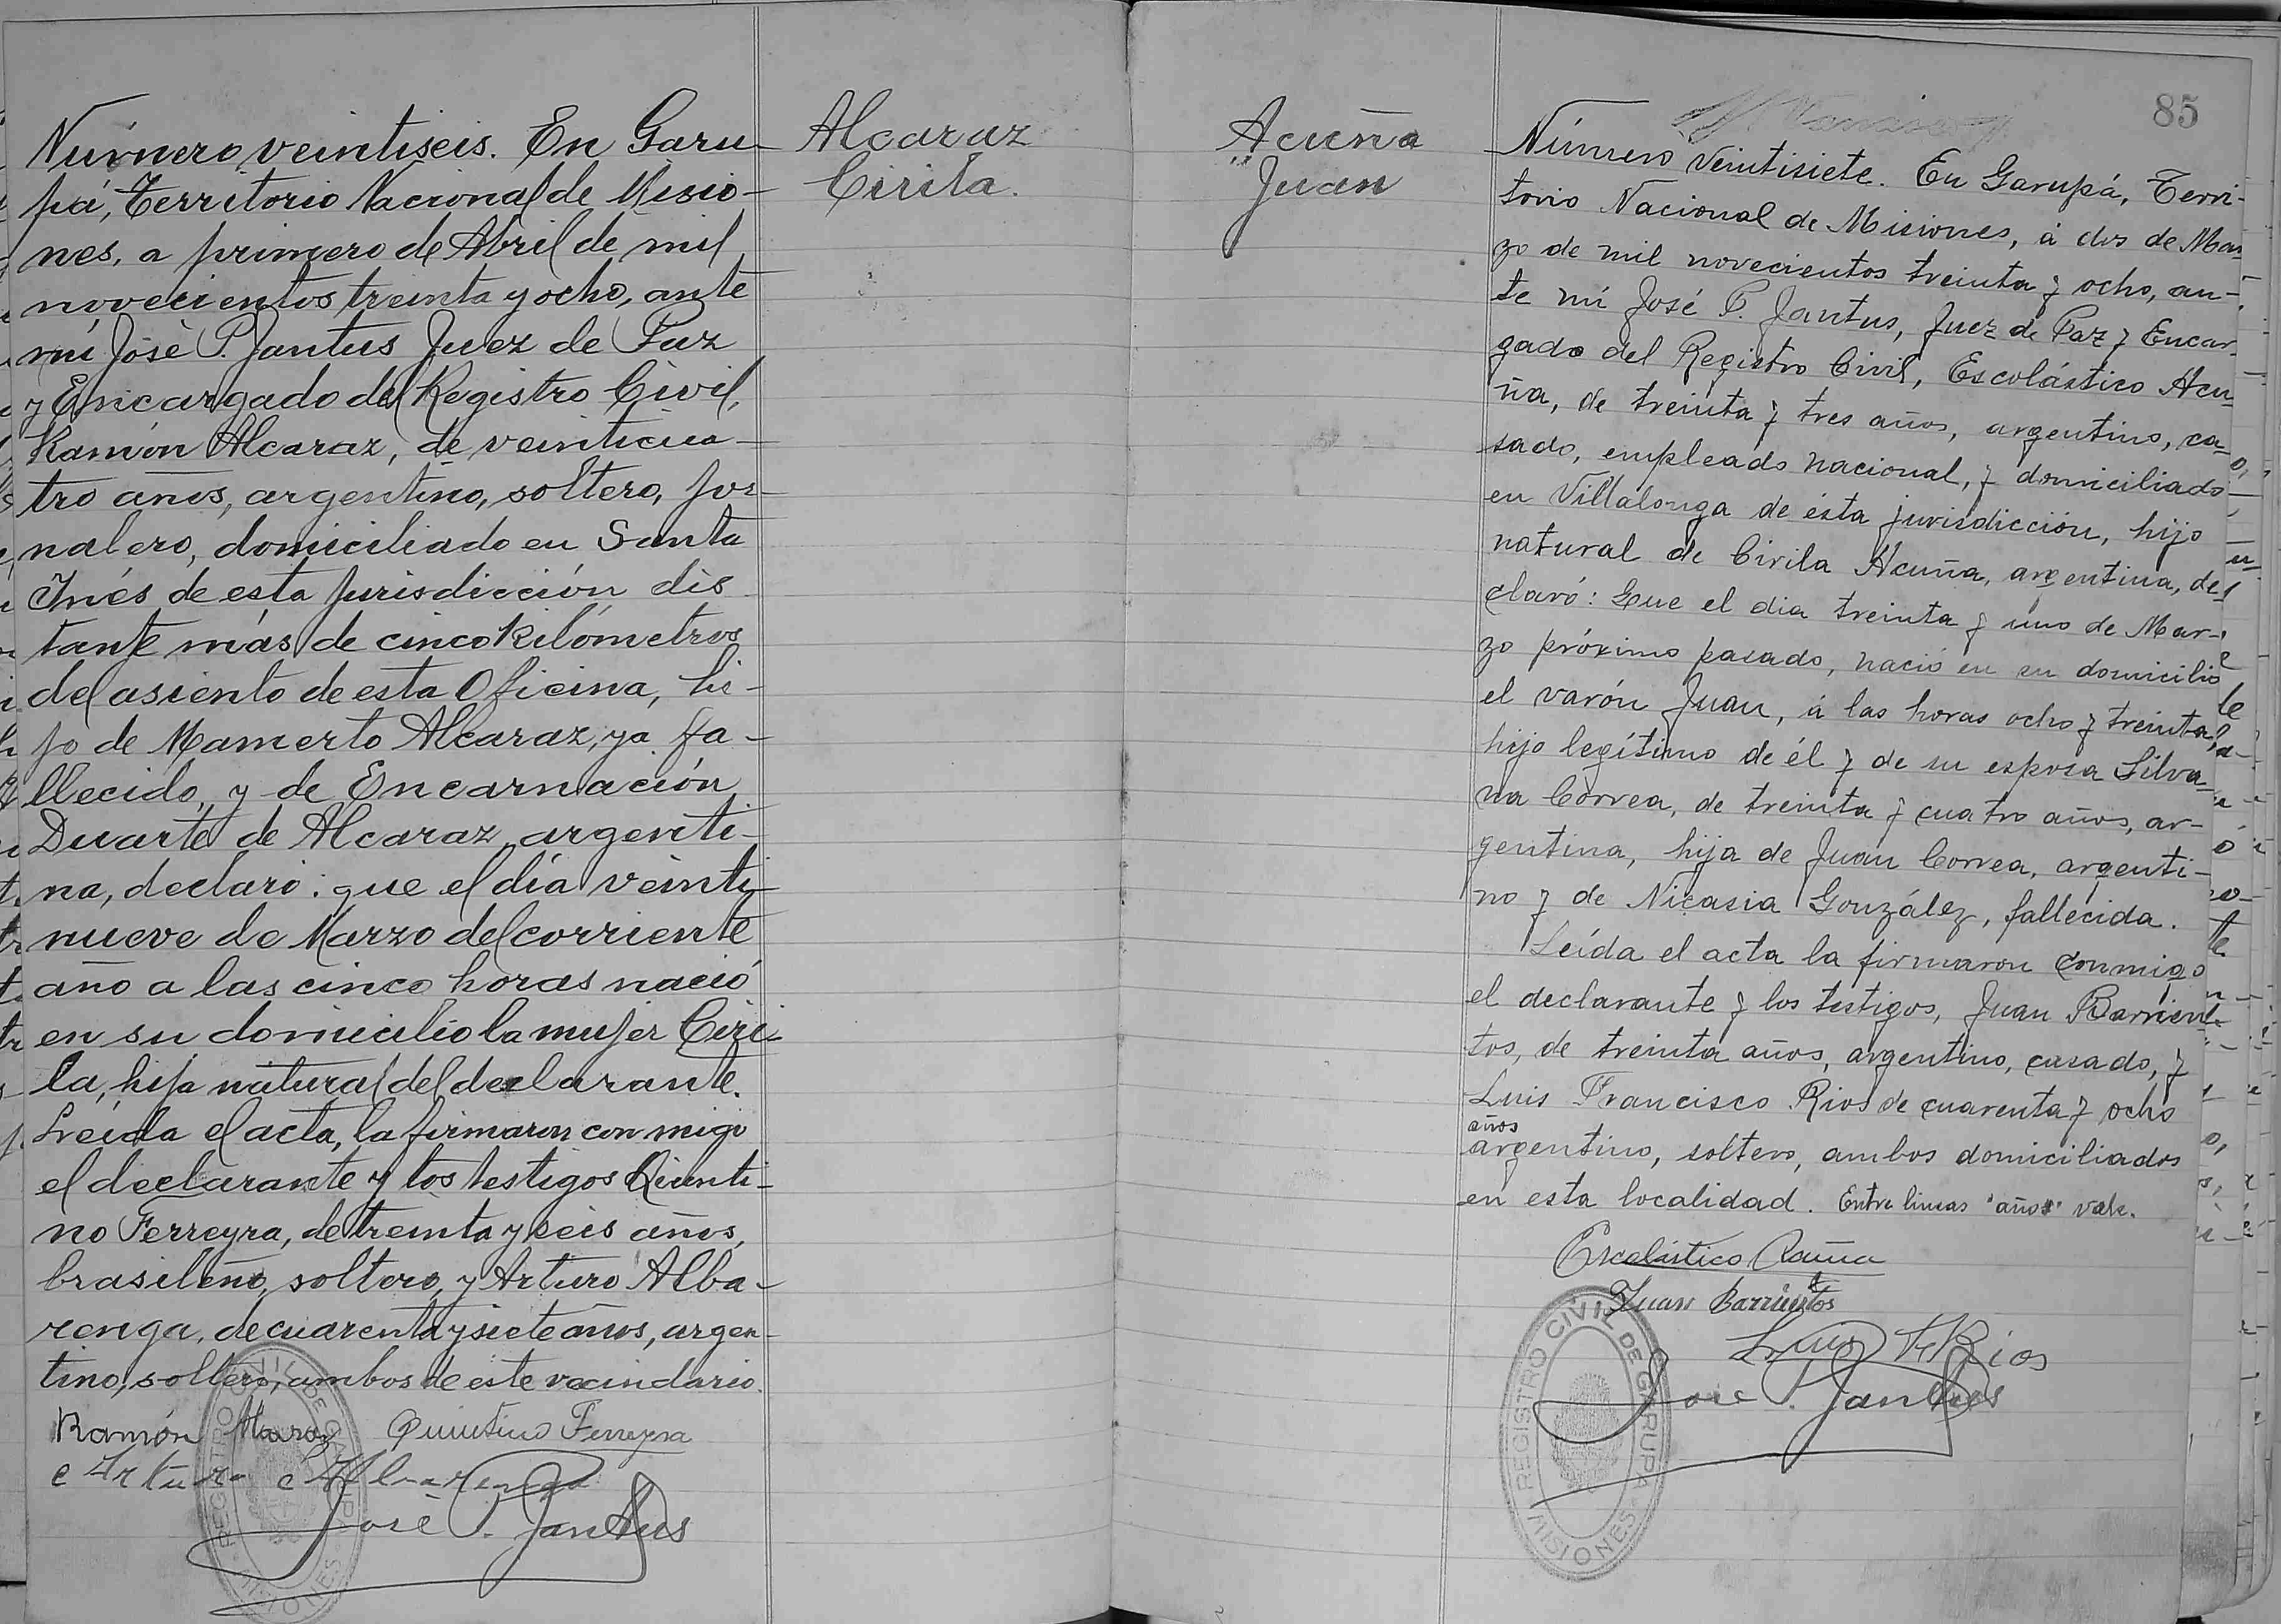 Número veintiseis. En Garu-
pá, Territorio Nacional de Misio-
nes, a primero de Abril de mil
novecientos treinta y ocho, ante
mí José P. Jantus Juez de Paz
y Encargado del Registro Civil,
Ramón Alcaraz, de veinticua-
tro años, argentino, soltero, jor-
nalero, domiciliado en Santa
Inés de esta jurisdicción dis
tante más de cinco kilómetros
del asiento de esta Oficina, hi-
jo de Mamerto Alcaraz, ya fa-
llecido, y de Encarnación
Duarte de Alcaraz, argenti-
na, declaró: que el día veinti-
nueve de Marzo del corriente
año a las cinco horas nació
en su domicilio la mujer Ciri-
la, hija natural del declarante.
Leída el acta, la firmaron conmigo
el declarante y los testigos Quinti-
no Ferreyra, de treinta y seis años,
brasileño, soltero, y Arturo Alba-
renga, de cuarenta y siete años, argen-
tino, soltero, ambos de este vecindario.
Ramón Alcaraz Quintino Ferreyra
Arturo Albarenga
José P. Jantus
REGISTRO CIVIL DE GARUPA
MISIONES
Alcaraz
Cirila.
Acuña
Juan
85
Número veintisiete. En Garupá, Terri-
torio Nacional de Misiones, á dos de Mar
zo de mil novecientos treinta y ocho, an-
te mí José P. Jantus, Juez de Paz y Encar-
gado del Registro Civil, Escolástico Acu-
ña, de treinta y tres años, argentino, ca-
sado, empleado nacional, y domiciliado
en Villalonga de ésta jurisdicción, hijo
natural de Cirila Acuña, argentina, de-
claró: Que el dia treinta y uno de Mar-
zo próximo pasado, nació en su domicilio
el varón Juan, á las horas ocho y treinta,
hijo legítimo de él y de su esposa Silva-
na Correa, de treinta y cuatro años, ar-
gentina, hija de Juan Correa, argenti-
no y de Nicasia González, fallecida.
Leída el acta la firmaron conmigo
el declarante y los testigos, Juan Barrien-
tos, de treinta años, argentino, casado, y
Luis Francisco Rios de cuarenta y ocho
años
argentino, soltero, ambos domiciliados
en esta localidad. Entre lineas "años" vale.
Escolástico Acuña
Juan Barrientos
Luis F. Rios
José P. Jantus
REGISTRO CIVIL DE GARUPA
MISIONES